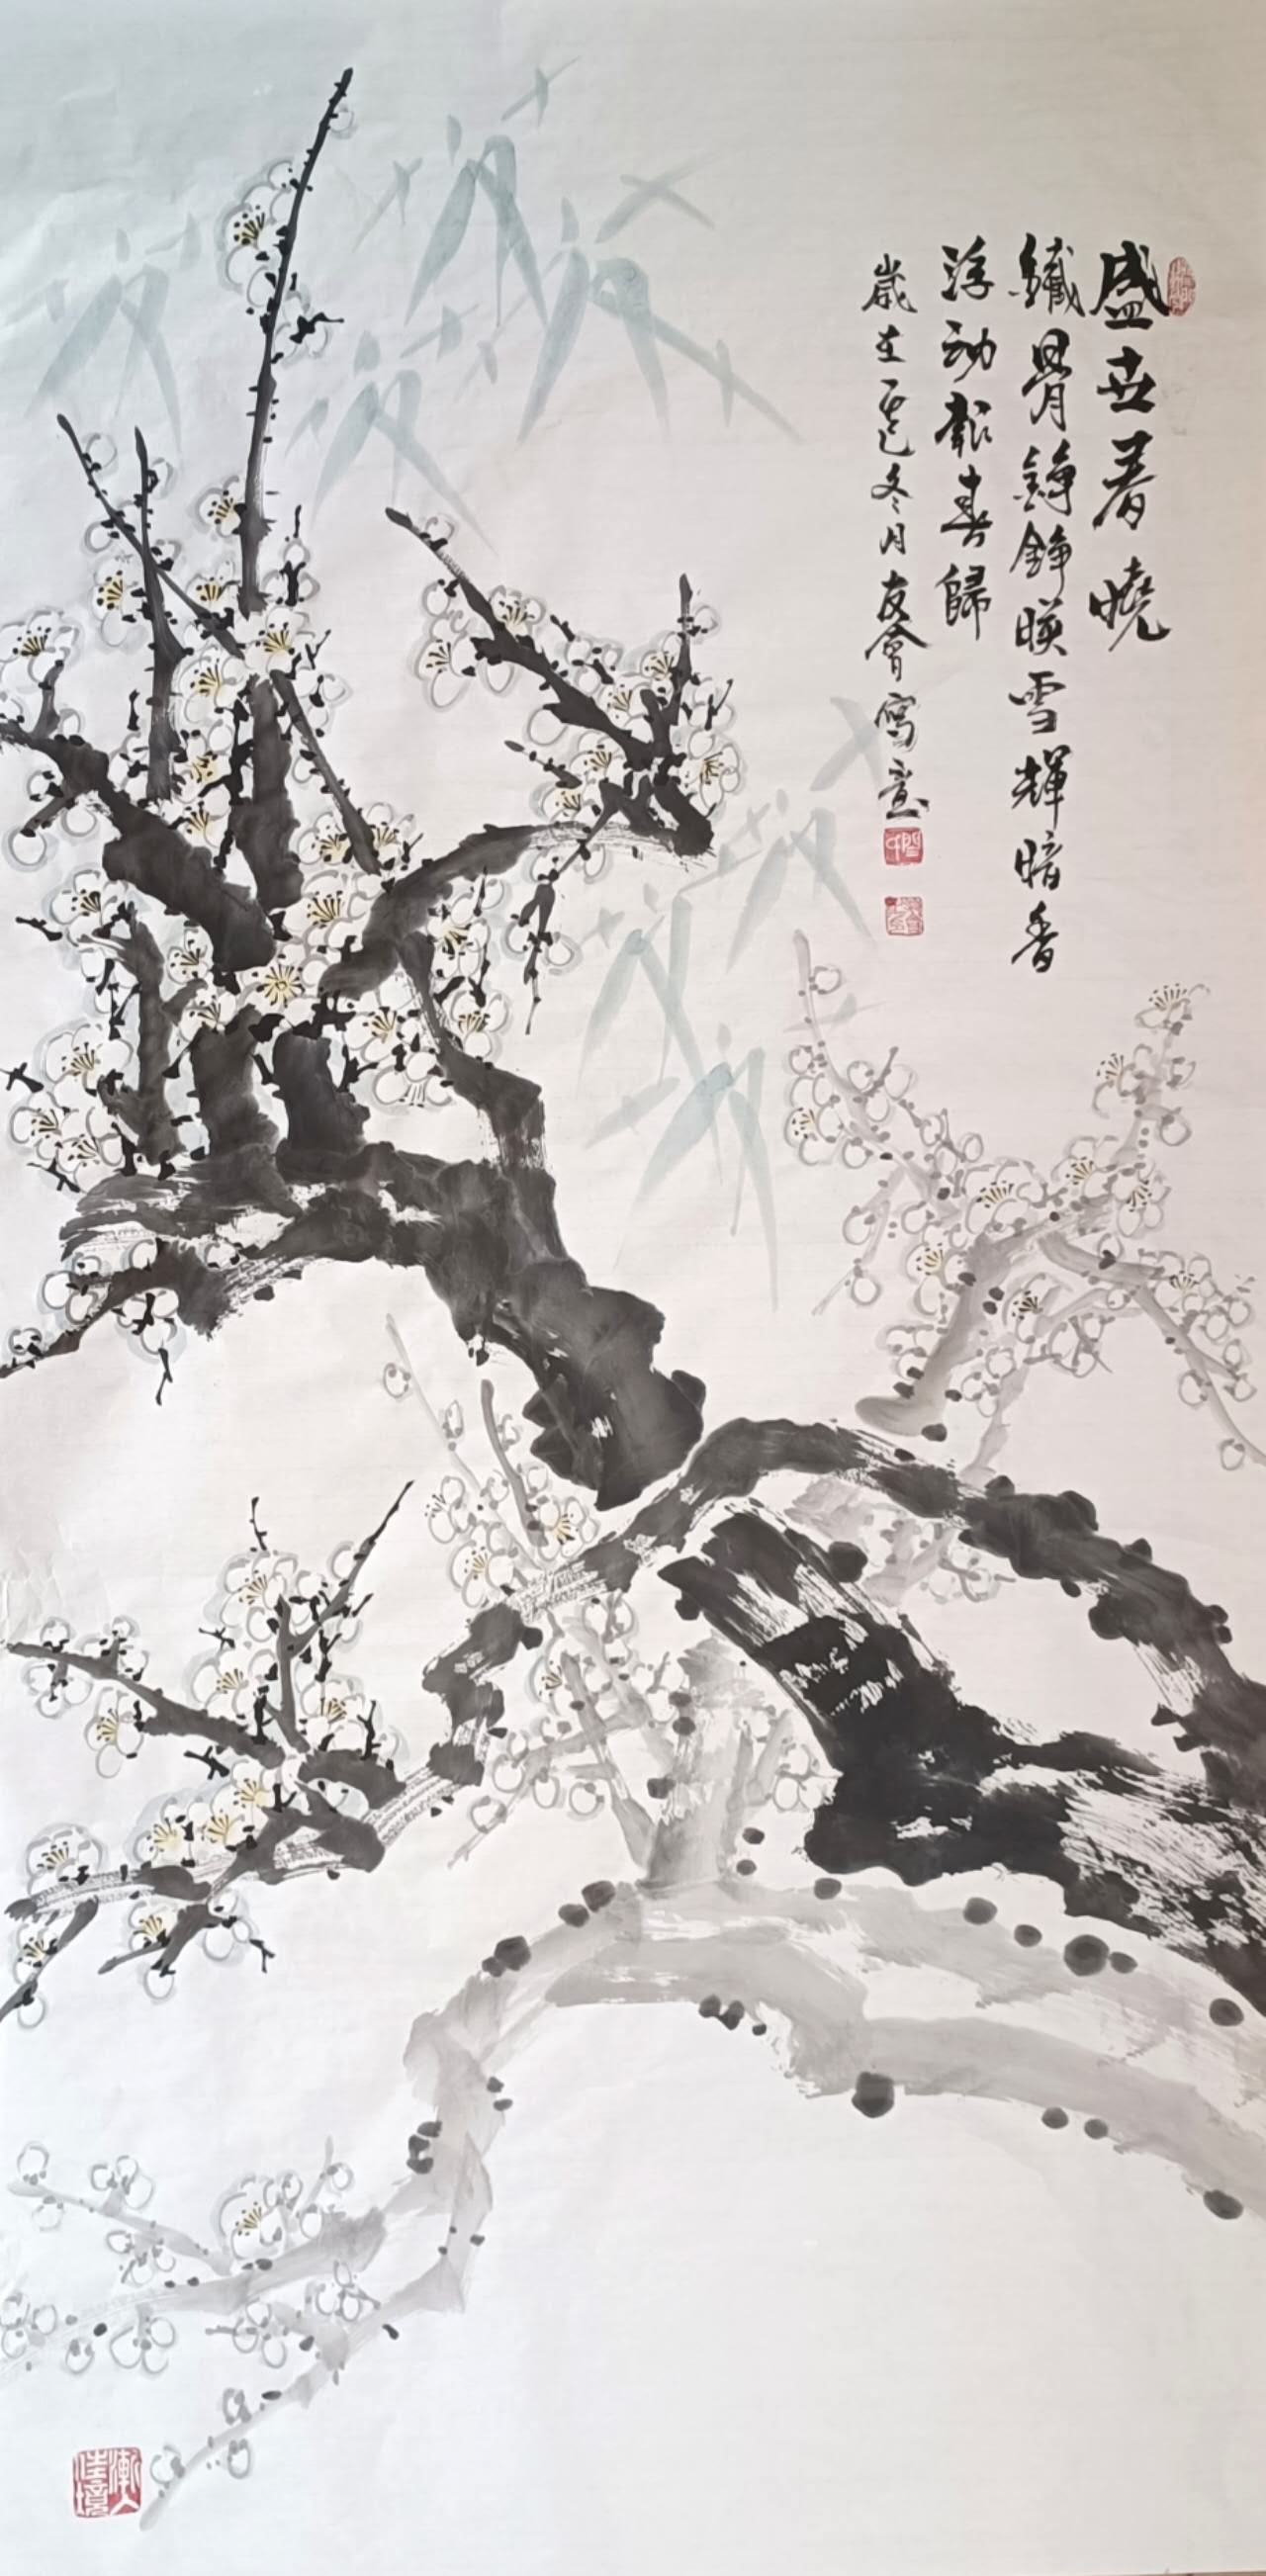 盛世春曉
鐵骨錚錚映雪輝暗香
浮動報春歸
歲在乙巳冬月友會寫意
漸入佳境